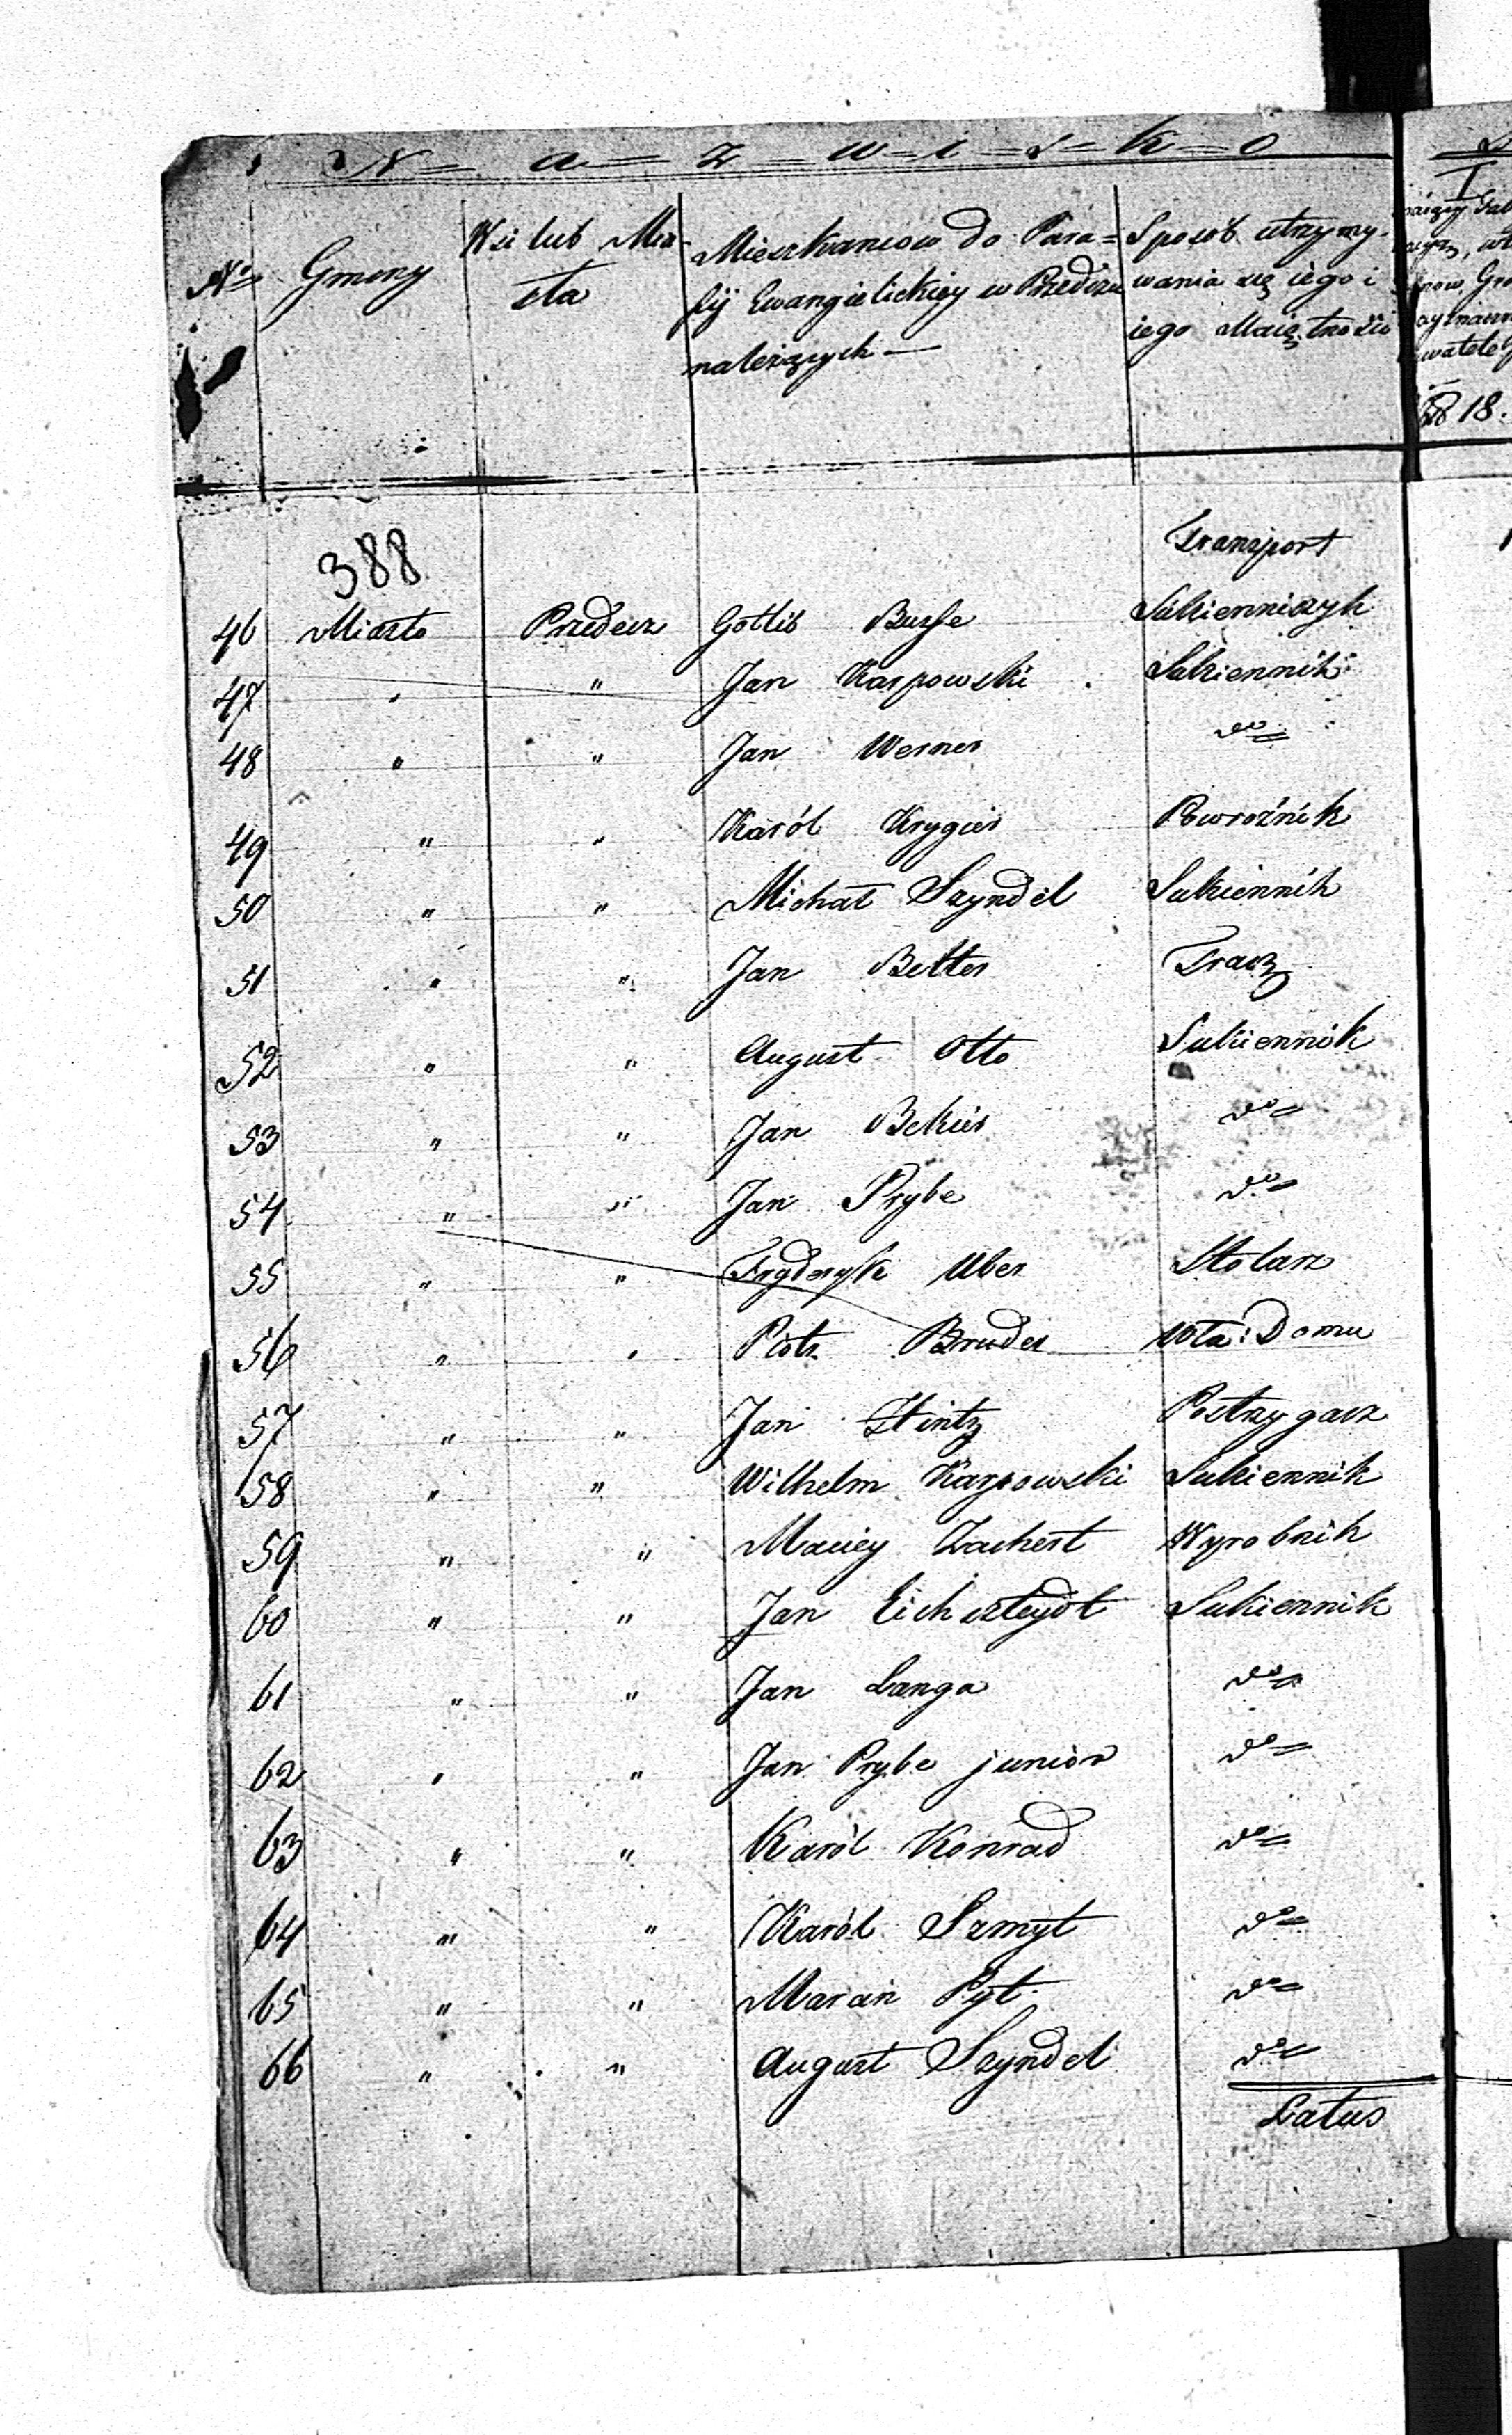 N = a = z = w = i = s = k = o
No Gminy Wsi lub Mia- Mieszkancow do Para= Sposob utrzymy-
sta fij Ewangielickiey w Przedczu wania się iego i
należących — iego Maiętności
18.
388 Transport
46 Miasto Przedecz Gotlib Busse Sukienniczyk
47 " " Jan Karpowski Sukiennik
48 " " Jan Werner do
49 " " Karól Krygier Powroźnik
50 " " Michał Szyndel Sukiennik
51 " " Jan Better Tracz
52 " " August Otto Sukiennik
53 " " Jan Bekier do
54 " " Jan Prybe do
55 " " Fryderyk Uber Stolarz
56 " " Piotr Bruder wła: Domu
57 " " Jan Hintz Postrzygacz
58 " " Wilhelm Karpowski Sukiennik
59 " " Maciey Zachert Wyrobnik
60 " " Jan Eichsztydt Sukiennik
61 " " Jan Langa do
62 " " Jan Prybe junior do
63 " " Karól Konrad do
64 " " Karól Szmyt do
65 " " Marcin Pyt do
66 " " August Szyndel do
Latus